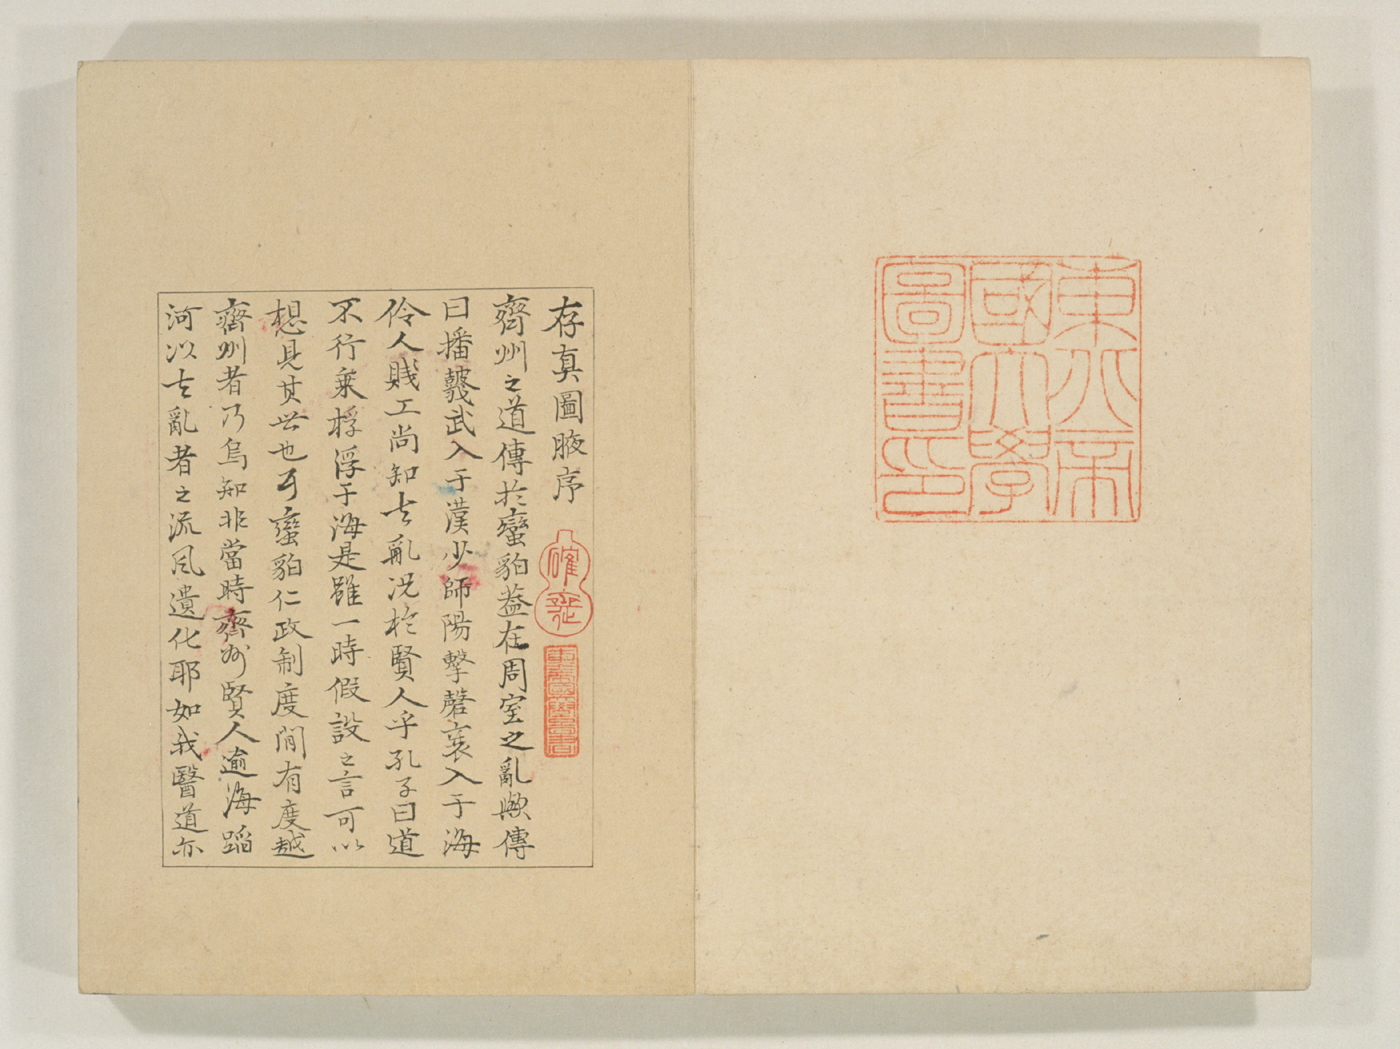 東京帝
國大學
圖書印
存真圖腋序
齊州之道傳於蠻貊蓋在周室之亂歟傳
曰播鼗武入于漢少師陽擊磬襄入于海
伶人賤工尚知去亂況於賢人乎孔子曰道
不行乘桴浮于海是雖一時假設之言可以
想見其世也蠻貊仁政制度間有度越
齊州者乃烏知非當時齊州賢人逾海蹈
河以去亂者之流風遺化耶如我醫道亦